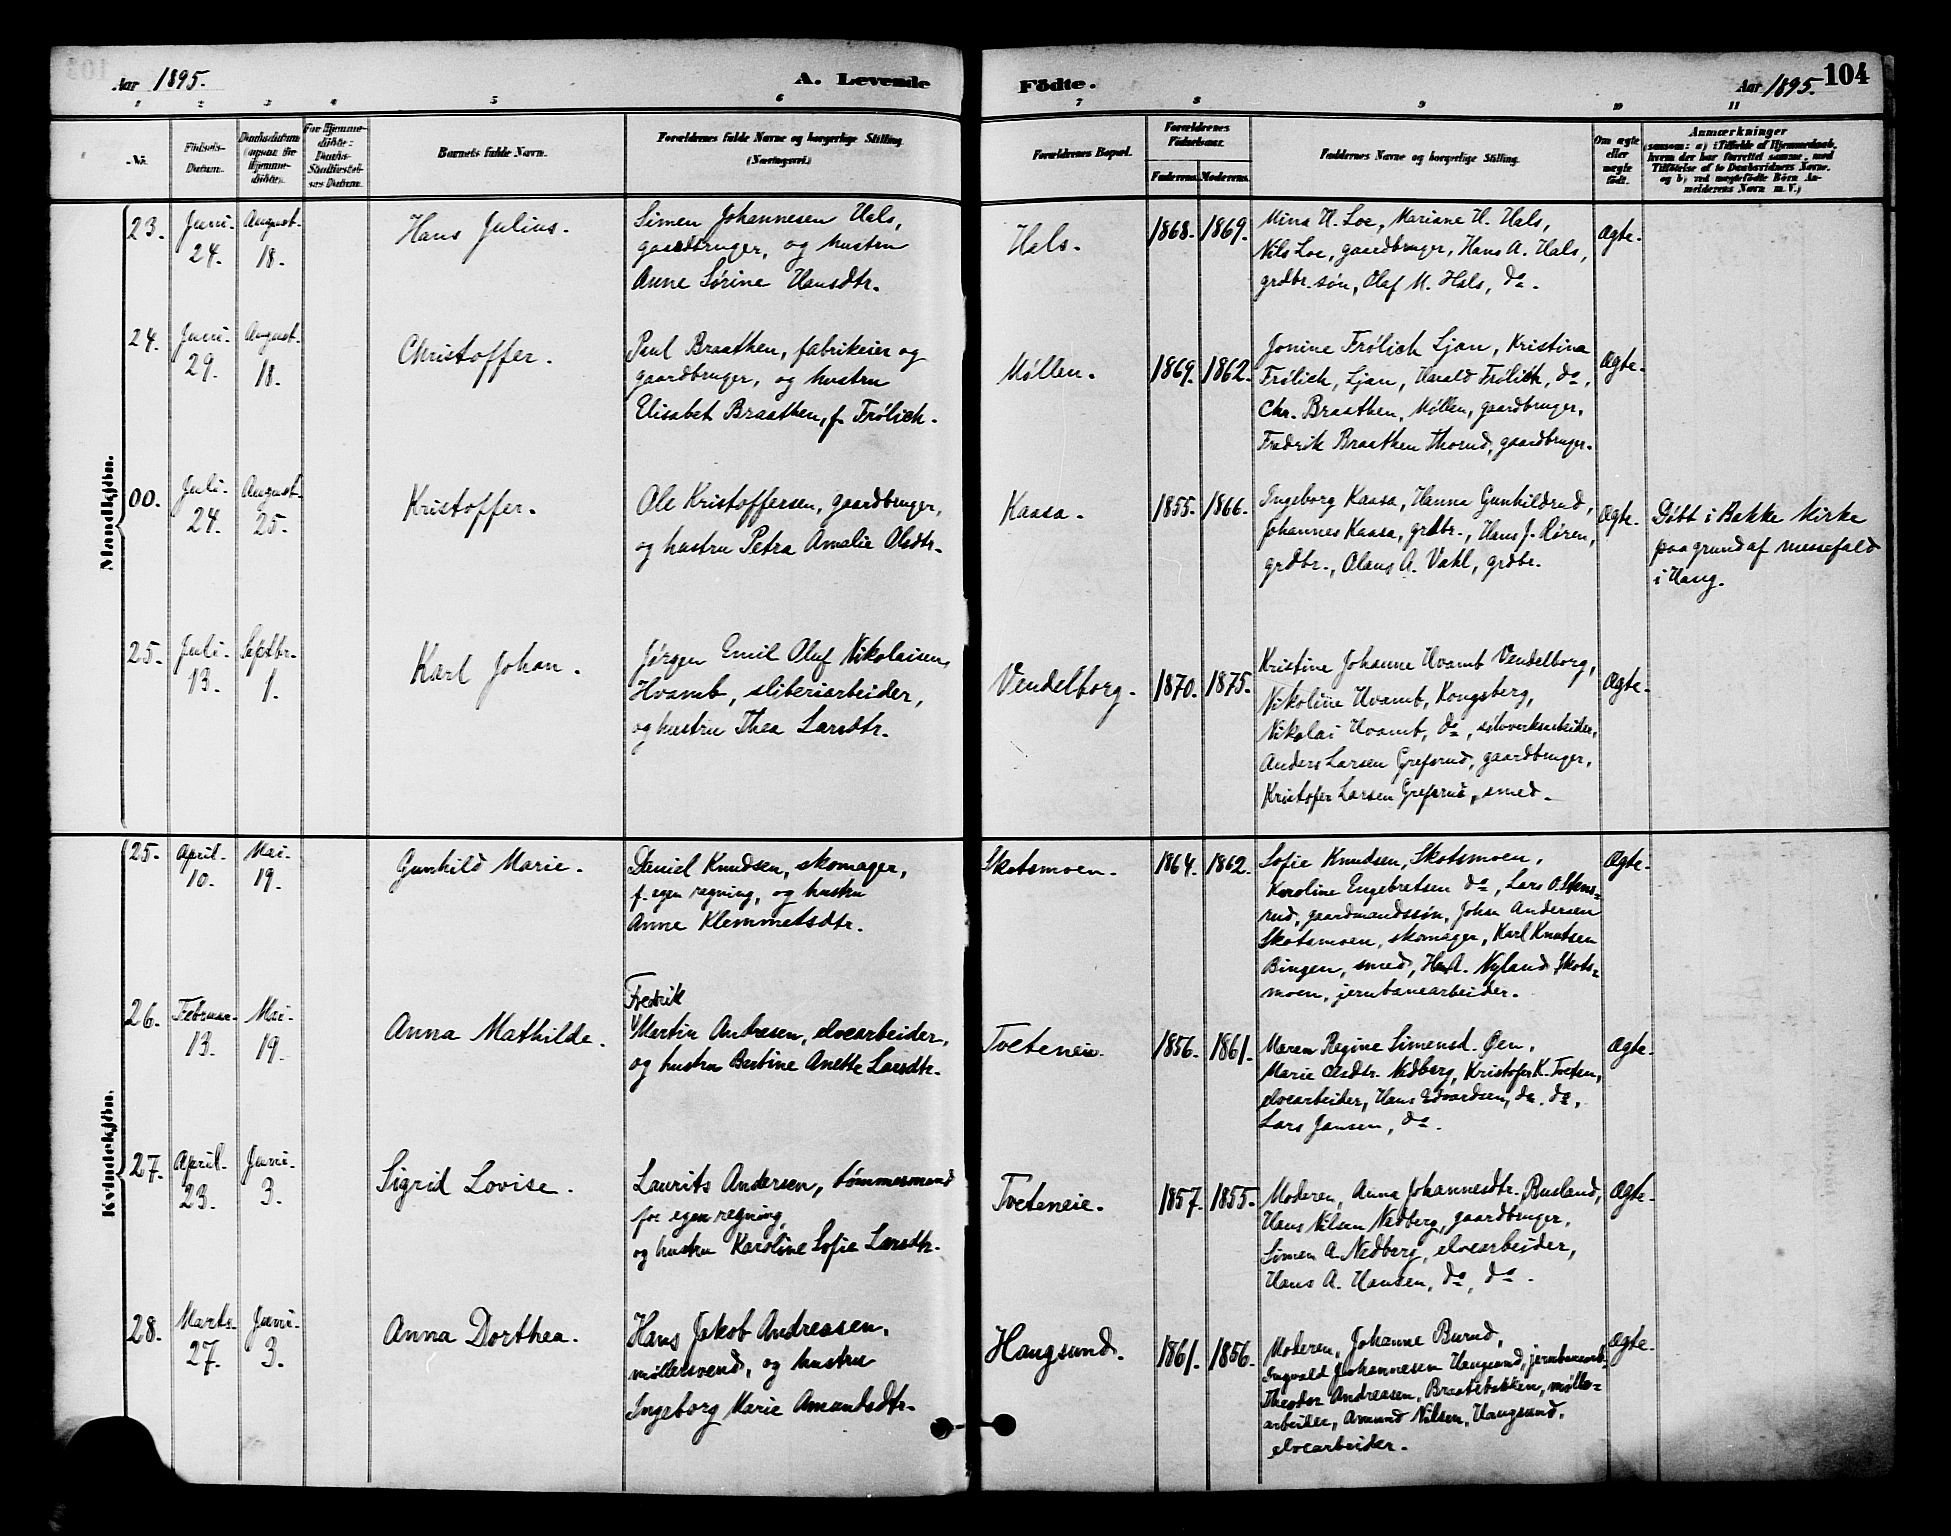 Aar 1895.
A. Levende
Födte.
Aar 1895.
104
1 2 3 4 5 6 7 8 9 10 11
Nr.
Födsels-Datum.
Barnets fulde Navn.
Forældrenes fulde Navne og borgerlige Stilling
(Næringsvei.)
Forældrenes Bopæl.
Forældrenes Fødselsaar.
Faderens. Moderens.
Faddernes Navne og borgerlige Stilling
Om ægte eller uægte født.
Anmærkninger
(saasom: a) i Tilfælde af Hjemmedaab,
hvem der har forrettet samme, med
Tilföielse af to Daabsvidners Navne,
og b) ved uægtefødte Börn An-
melderens Navn m. V.)
Mandkjön.
23.
Juni
24.
August
18.
Hans Julius.
Simen Johannesen Hals,
gaardbruger, og hustru
Anne Sørine Hansdtr.
Hals.
1868. 1869.
Mina H. Loe, Mariane H. Hals,
Nils Loe, gaardbruger, Hans A. Hals,
grdbr. søn, Olaf M. Hals, do.
Ægte.
24.
Juni
29.
August
18.
Christoffer.
Paul Braathen, fabrikeier og
gaardbruger, og hustru
Elisabet Braathen, f. Frølich.
Møllen.
1869. 1862.
Jonine Frølich Ljan, Kristina
Frølich, Ljan, Harald Frølich, do,
Chr. Braathen, Møllen, gaardbruger,
Fredrik Braathen Thorud, gaardbruger.
Ægte.
00.
Juli
24.
August
25.
Kristoffer.
Ole Kristoffersen, gaardbruger,
og hustru Petra Amalie Olsdtr.
Kaasa.
1855. 1866.
Ingeborg Kaasa, Hanna Gunhildrud,
Johannes Kaasa, grdbr., Hans J. Røren,
grdbr., Olaus A. Vahl, grdbr.
Ægte.
Døbt i Bakke Kirke
paa grund af messefald
i Haug.
25.
Juli
13.
Septbr.
1.
Karl Johan.
Jørgen Emil Oluf Nikolaisen
Hvamb, sliberiarbeider,
og hustru Thea Larsdtr.
Vendelborg.
1870. 1875.
Kristine Johanne Hvamb Vendelborg,
Nikoline Hvamb, Kongsberg,
Nikolai Hvamb, do, sølvverksarbeider,
Anders Larsen Grefsrud, gaardbruger,
Kristofer Larsen Grefsrud, smed.
Ægte.
Kvindekjön.
25.
April
10.
Mai
19.
Gunhild Marie.
Daniel Knudsen, skomager,
f. egen regning, og hustru
Anne Klemmetsdtr.
Skotsmoen.
1864. 1862.
Sofie Knudsen, Skotsmoen,
Karoline Engebretsen do, Lars O. Stens-
rud, gaardmandssøn, Johan Andersen
Skotsmoen, skomager, Karl Knutsen
Bingen, smed, H. A. Nyland Skots-
moen, jernbanearbeider.
Ægte.
26.
Februar
13.
Mai
19.
Anna Mathilde.
Fredrik
Martin Andresen, elvearbeider,
og hustru Bertine Anette Larsdtr.
Tveteneie.
1856. 1861.
Maren Regine Simensd. Øen,
Marie Olsdtr. Nedberg, Kristofer K. Tveten,
elvearbeider, Hans Edvardsen, do. do,
Lars Jansen, do.
Ægte.
27.
April
23.
Juni
3.
Sigrid Lovise.
Laurits Andersen, tømmermand
for egen regning,
og hustru Karoline Sofie Larsdtr.
Tveteneie.
1857. 1855.
Moderen, Anna Johannesdtr. Rusland,
Hans Nilsen Nedberg, gaardbruger,
Simen A. Nedberg, elvearbeider,
Hans A. Hansen, do, do.
Ægte.
28.
Marts
27.
Juni
3.
Anna Dorthea.
Hans Jakob Andreasen,
møllersvend, og hustru
Ingeborg Marie Amundsdtr.
Haugsund.
1861. 1856.
Moderen, Johanne Burud,
Ingvald Johannesen Haugsund, jernbanearb.
Theodor Andreasen, Braatebakken, mølle-
arbeider, Amund Nilsen, Haugsund,
elvearbeider.
Ægte.